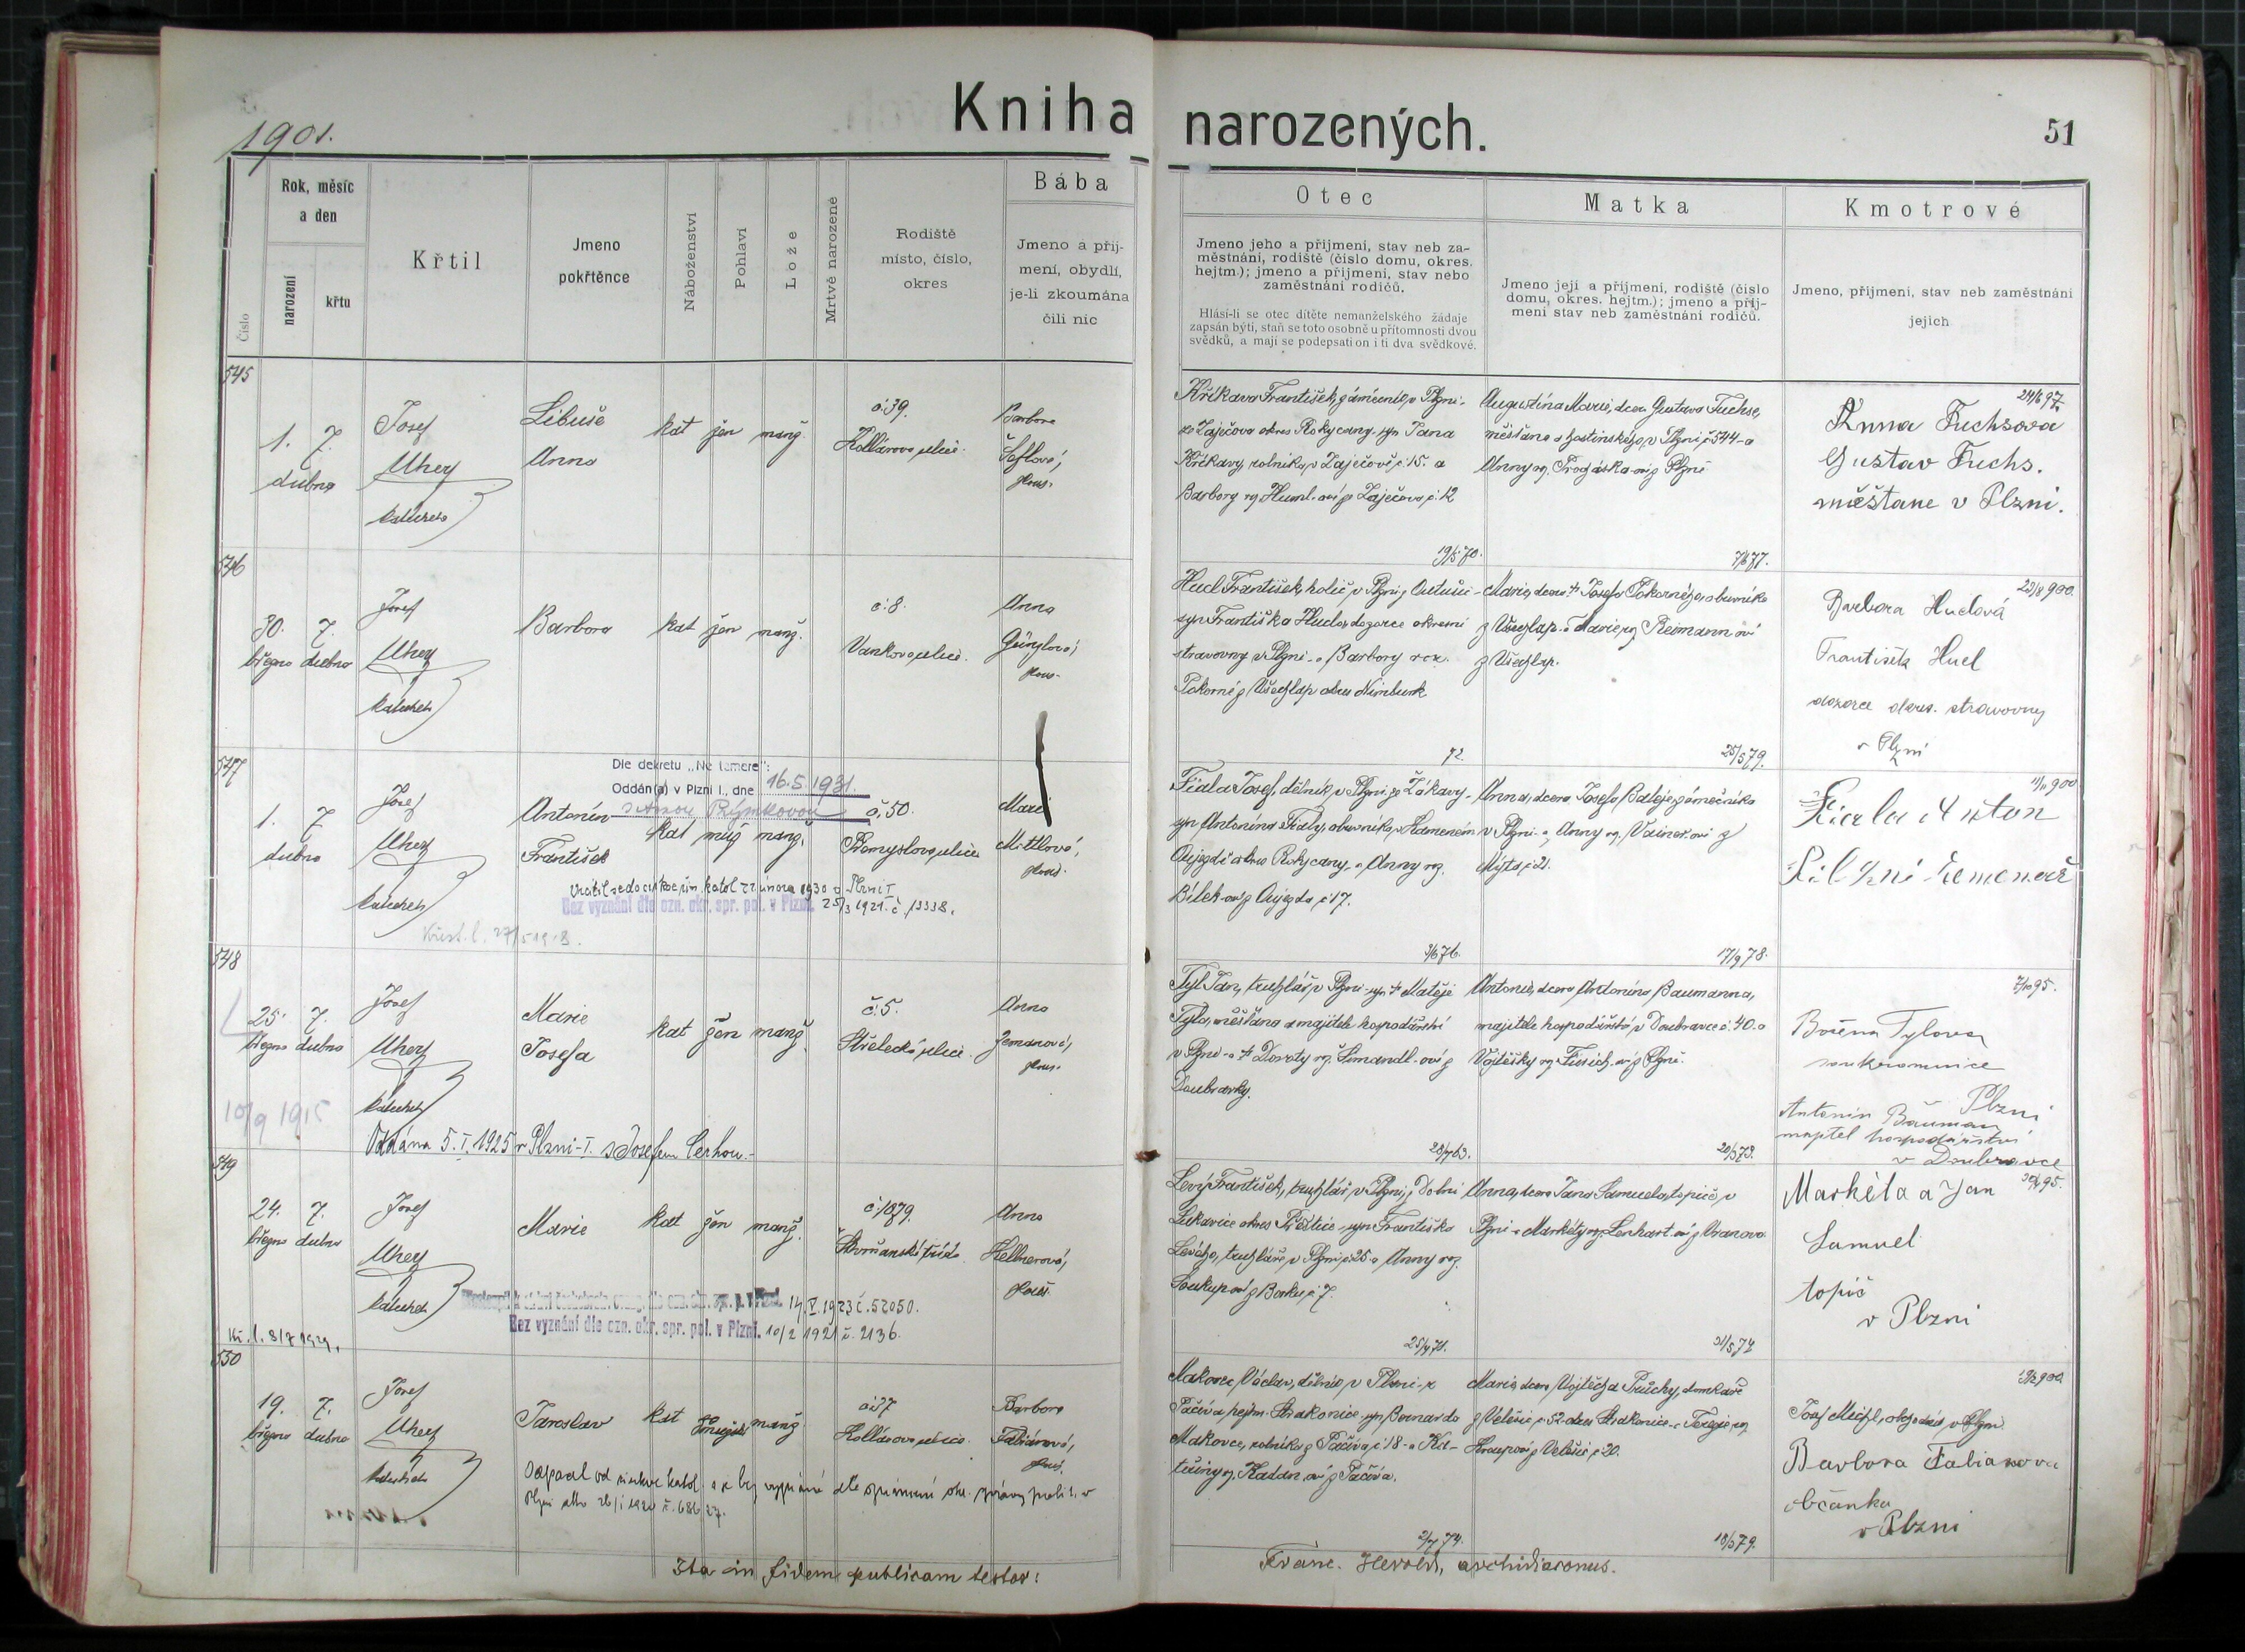 Kniha narozených.
1901.
51
Číslo
Rok, měsíc
a den
narození
křtu
Křtil
Jmeno
pokřtěnce
Náboženství
Pohlaví
Lože
Mrtvě narozené
Rodiště
místo, číslo,
okres
Bába
Jmeno a příj-
mení, obydlí,
je-li zkoumána
čili nic
Otec
Jmeno jeho a příjmení, stav neb za-
městnání, rodiště (číslo domu, okres.
hejtm.); jmeno a příjmení, stav nebo
zaměstnání rodičů.
Hlásí-li se otec dítěte nemanželského žádaje
zapsán býti, staň se toto osobně u přítomnosti dvou
svědků, a mají se podepsati on i ti dva svědkové.
Matka
Jmeno její a příjmení, rodiště (číslo
domu, okres. hejtm.); jmeno a příj-
mení stav neb zaměstnání rodičů.
Kmotrové
Jmeno, příjmení, stav neb zaměstnání
jejich
545
1. 7.
dubna
Josef
Uhey
katecheta
Libuše
Anna
kat žen manž.
č. 39.
Kollárova ulice.
Barbora
Šeflová,
zkouš.
Křikava František, zámečník v Plzni-
ze Zaječova okres Rokycany, syn Jana
Křikavy, rolníka v Zaječově č. 15. a
Barbory roz. Huml-ové z Zaječova č. 12
19/5 70.
Augustina Marie, dcera Gustava Fuchse,
měšťana a hostinského v Plzni č 544 a
Anny roz. Procháska-ové z Plzně
7/6 77.
24/6 97.
Anna Fuchsova
Gustav Fuchs.
měštane v Plzni.
546
30. 7.
března dubna
Josef
Uhey
katecheta
Barbora
kat žen manž.
č. 8.
Vankova ulice.
Anna
zkouš.
Hucl František, holič v Plzni
syn Františka Hucla, dozorce okresní
stravovny v Plzni a Barbory roz.
Pokorné z Všechlap okres Nimburk
72.
Marie, dcera † Josefa Pokorného, obuvníka
z Všechlap a Marie roz. Reimann-ové
z Všechlap.
25/5 79.
23/8 900.
Barbora Huclová
František Hucl
dozorce okres. stravovny
v Plzni
547
1. 7.
dubna
Josef
Uhey
katecheta
Dle dekretu „Ne temere":
Oddán(a) v Plzni I., dne 16.5.1931.
s Annou Rýmkovou
Antonín
František
kat muž manž.
č. 50.
Přemyslova ulice
Marie
Mittlová,
zkouš.
Vrátil se do církve řím. katol. února 1930 v Plzni I.
Bez vyznání dle ozn. okr. spr. pol. v Plzni. 25/3 1921. č. 13338.
Křest. l. 27/5 1918.
Fiala Josef, dělník v Plzni ze Žákavy-
syn Antonína Fialy, obuvníka v Kamenném
Oujezdě okres Rokycany, a Anny roz.
Bílek-ové z Oujezda č 17.
3/6 76.
Anna, dcera Josefa Baleje, zámečníka
v Plzni a Anny roz. Vainer-ové z
Mýta č 21.
17/9 78.
11/11 900
Fiala Anton
Pilzni řemenař
548
25. 7.
března dubna
Josef
Uhey
katecheta
10/9 1915
Marie
Josefa
kat žen manž.
č. 5.
Střelecká ulice.
Anna
Zemanová,
zkouš.
Oddána 5.I.1925 v Plzni-I. s Josefem Čerhou.-
Tyl Jan, truhlář v Plzni syn † Matěje
Tyla, měšťana a majitele hospodářství
v Plzni a † Doroty roz. Šimandl-ové z
Doubravky.
28/7 63.
Antonie, dcera Antonína Baumanna,
majitele hospodářství v Doubravce č. 40. a
Vojtěšky roz. Fiesich-ové z Plzně.
20/5 73.
7/10 95.
Božena Tylova
soukromnice
Plzni
Antonín Bauman
majitel hospodářství
v Doubravce
549
24. 7.
března dubna
Josef
Uhey
katecheta
Kř. l. 8/7 1929.
Marie
kat žen manž.
č. 1879.
Skvrňanská třída.
Anna
Hellnerová,
zkouš.
14.V.1923 č. 52050.
Bez vyznání dle ozn. okr. spr. pol. v Plzni. 10/2 1921 č. 2136.
Levý František, truhlář v Plzni, z Dolní
Lukavice okres Přeštice syn Františka
Levého, truhláře v Plzni č 25 a Anny roz.
Soukup-ové z Borku č 7.
25/4 71.
Anna, dcera Jana Samuela, topiče v
Plzni a Markéty roz. Lenhart-ové z Vranova.
31/5 74
30/4 95.
Markéta a Jan
Samuel
topič
v Plzni
550
19. 7.
března dubna
Josef
Uhey
katecheta
Jaroslav
kat mužské manž.
č. 37
Kollárova ulice.
Barbora
Fabiánová,
zkouš.
Odpadl od církve katol. a je bez vyznání dle oznámení okr. správy polit. v
Plzni dto 26/I 1921 č. 686
Makovec Václav, dělník v Plzni z
Pačiva hejtm. Strakonice syn Bernarda
Makovce, rolníka z Pačiva č 18 a Ka-
teřiny roz. Kadan-ové z Pačiva.
2/7 74.
Marie, dcera Vojtěcha Průchy, domkaře
z Velešic č 52 okres Strakonice a Terezie roz.
Kroupové z Velešic č 20.
18/5 79.
19/2 900
Josef Michl, obchodník v Plzni
Barbora Fabianova
občanka
v Plzni
Ita in fidem publicam testor:
Franc. Herold, archidiaconus.